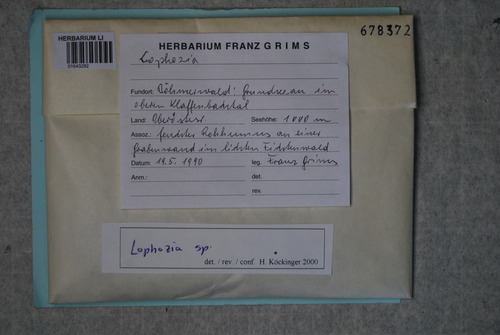 HERBARIUM LI
678372
HERBARIUM FRANZ GRIMS
Lophozia
Fundort: Böhmerwald: im
oberen
Land: Oberösterr. Seehöhe: 1000 m
Assoz.: feuchter Rohhumus an einer
Grabenwand im lichten Fichtenwald
Datum: 19.5.1990 leg. Franz Grims
Anm.: det.
rev.
Lophozia sp.
det. / rev. / conf. H. Köckinger 2000